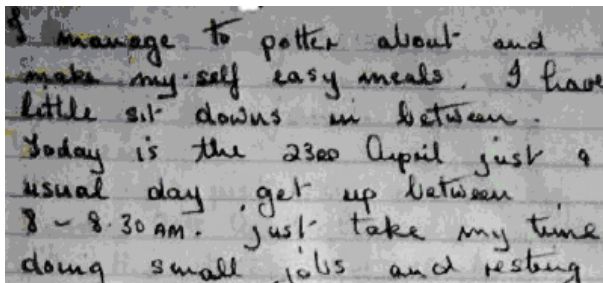 I manage to potter about and
make my-self easy meals. I have
little sit downs in between.
Today is the 23RD April just a
usual day get up between
8 - 8.30 AM. just take my time
doing small jobs and resting